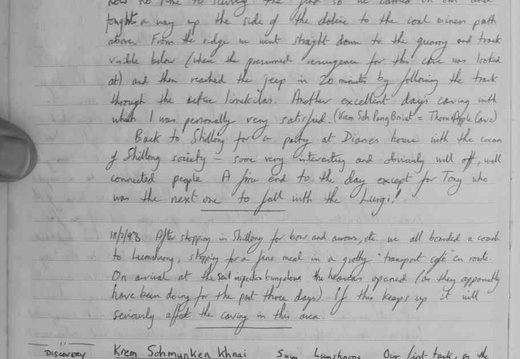 now no time to survey the find so we carried on out and
fought a way up the side of the doline to the coal miners path
above. From the ridge we went straight down to the quarry and track
visible below (where the presumed resurgence for this cave was looked
at) and then reached the jeep in 20 minutes by following the track
through the active limekilns. Another excellent days caving with
which I was personally very satisfied. (Krem Soh Pang Bniat = Thorn Apple Cave)
Back to Shillong for a party at Dianes house with the cream
of Shillong society – some very interesting and obviously well off, well
connected people. A fine end to the day except for Tony who
was the next one to fall with the Lurgi!
After stopping in Shillong for bows and arrows, etc we all boarded a coach
to Lumshnong, stopping for a fine meal in a grotty "transport cafe" en route
On arrival at the Soil inspection bungalow the heavens opened (as they apparently
have been doing for the past three days). If this keeps up it will
seriously affect the caving in this area.
DISCOVERY Krem Sohmynken Khnai Our first task, on the